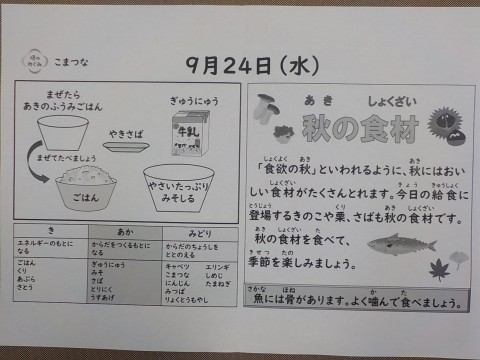 畑のめぐみ こまつな
9月24日(水)
まぜたら
あきのふうみごはん
ぎゅうにゅう
やきさば
牛乳
まぜてたべましょう
ごはん
やさいたっぷり
みそしる
き あか みどり
エネルギーのもとに
なる
からだをつくるもとに
なる
からだのちょうしを
ととのえる
ごはん
くり
あぶら
さとう
ぎゅうにゅう
みそ
さば
とりにく
うすあげ
キャベツ エリンギ
こまつな しめじ
にんじん たまねぎ
みつば
りょくとうもやし
あき しょくざい
秋の食材
しょくよく あき あき
「食欲の秋」といわれるように、秋にはおい
しょくざい きょう きゅうしょく
しい食材がたくさんとれます。今日の給食に
とうじょう くり あき しょくざい
登場するきのこや栗、さばも秋の食材です。
あき しょくざい た
秋の食材を食べて、
きせつ たの
季節を楽しみましょう。
さかな ほね か た
魚には骨があります。よく噛んで食べましょう。